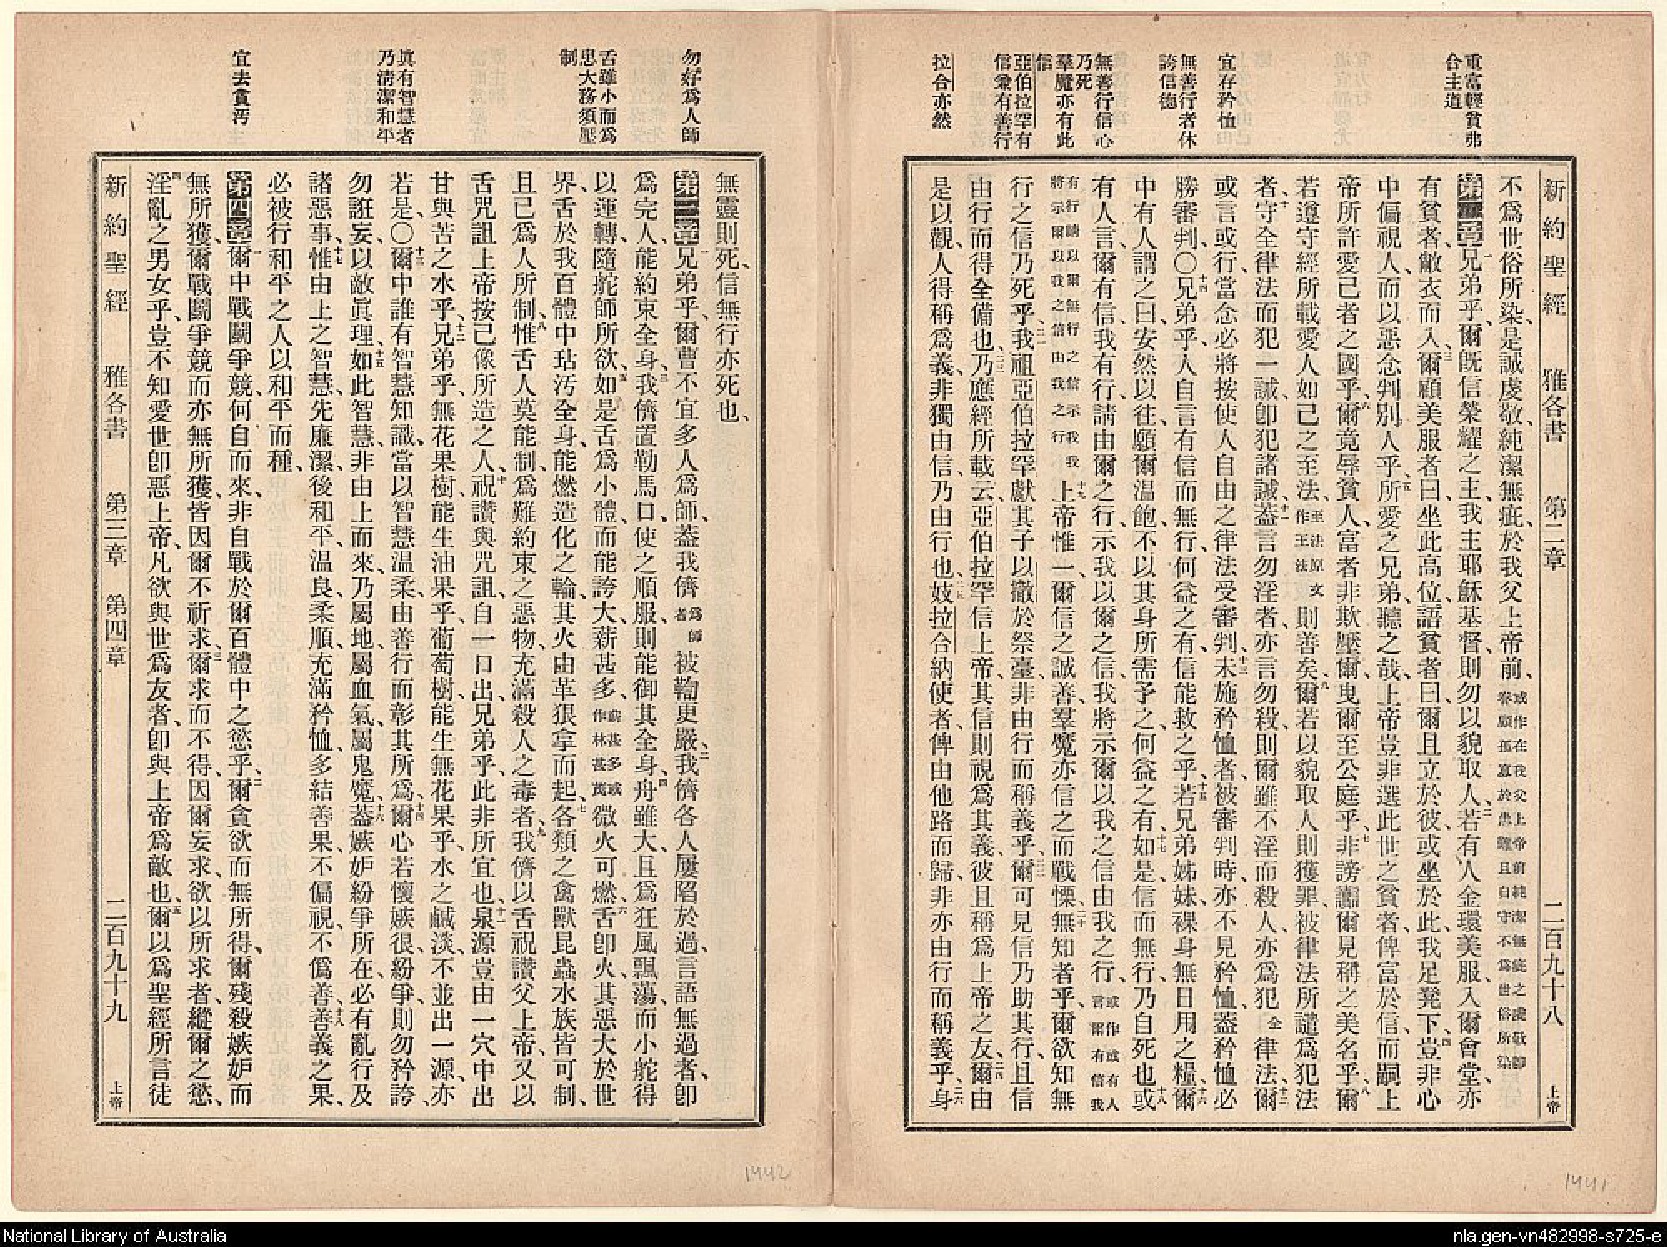 新約聖經 雅各書 第二章 二百九十八 上帝
重富輕貧弗
合主道
宜存矜恤
無善行者休
誇信德
無善行信心
乃死
羣魔亦有此
信
亞伯拉罕有
信兼有善行
拉合亦然
不爲世俗所染、是誠虔敬、純潔無疵、於我父上帝前、或作在我父上帝前純潔無疵之虔敬卽眷顧孤寡於患難且自守不爲世俗所染
第二章兄弟乎、爾旣信榮耀之主、我主耶穌基督、則勿以貌取人、若有人金環美服、入爾會堂、亦
有貧者、敝衣而入、爾顧美服者曰、坐此高位、語貧者曰、爾且立於彼、或坐於此我足凳下、豈非心
中偏視人、而以惡念判別人乎、所愛之兄弟聽之哉、上帝豈非選此世之貧者、俾富於信、而嗣上
帝所許愛己者之國乎、爾竟辱貧人、富者非欺壓爾、曳爾至公庭乎、非謗讟爾見稱之美名乎、爾
若遵守經所載、愛人如己之至法、至法原文作王法則善矣、爾若以貌取人、則獲罪、被律法所譴爲犯法
者、守全律法而犯一誡、卽犯諸誡、蓋言勿淫者、亦言勿殺、則爾雖不淫而殺人、亦爲犯全律法、爾
或言或行、當念必將按使人自由之律法受審判、未施矜恤者、被審判時、亦不見矜恤、蓋矜恤必
勝審判、〇兄弟乎、人自言有信而無行、何益之有、信能救之乎、若兄弟姊妹、裸身無日用之糧、爾
中有人謂之曰、安然以往、願爾溫飽、不以其身所需予之、何益之有、如是信而無行、乃自死也、或
有人言、爾有信、我有行、請由爾之行、示我以爾之信、我將示爾以我之信、由我之行、或作或有人言爾有信我
有行請以爾無行之信示我我將示爾以我之信由我之行上帝惟一、爾信之誠善、羣魔亦信之而戰慄、無知者乎、爾欲知無
行之信乃死乎、我祖亞伯拉罕、獻其子以撒於祭臺、非由行而稱義乎、爾可見信乃助其行、且信
由行而得全備也、乃應經所載云、亞伯拉罕信上帝、其信則視爲其義、彼且稱爲上帝之友、爾由
是以觀、人得稱爲義、非獨由信、乃由行也、妓拉合納使者、俾由他路而歸、非亦由行而稱義乎、身
勿好爲人師
舌雖小而爲
患大務須壓
制
眞有智慧者
乃清潔和平
宜去貪汚
無靈則死、信無行亦死也、
第三章兄弟乎、爾曹不宜多人爲師、蓋我儕爲師者被鞫更嚴、我儕各人屢陷於過、言語無過者、卽
爲完人、能約束全身、我儕置勒馬口、使之順服、則能御其全身、舟雖大、且爲狂風飄蕩、而小舵得
以運轉、隨舵師所欲、如是舌爲小體、而能誇大、薪甚多、薪甚多或作林甚廣微火可燃、舌卽火、其惡大於世
界、舌於我百體中、玷汚全身、能燃造化之輪、其火由革狠拿而起、各類之禽獸昆蟲水族皆可制、
且已爲人所制、惟舌人莫能制、爲難約束之惡物、充滿殺人之毒者、我儕以舌祝讚父上帝、又以
舌咒詛上帝按己像所造之人、祝讚與咒詛、自一口出、兄弟乎、此非所宜也、泉源豈由一穴中出
甘與苦之水乎、兄弟乎、無花果樹、能生油果乎、葡萄樹、能生無花果乎、水之鹹淡、不並出一源、亦
若是、〇爾中誰有智慧知識、當以智慧溫柔、由善行而彰其所爲、爾心若懷嫉很紛爭、則勿矜誇、
勿誑妄以敵眞理、如此智慧、非由上而來、乃屬地、屬血氣、屬鬼魔、蓋嫉妒紛爭所在、必有亂行及
諸惡事、惟由上之智慧、先廉潔、後和平、溫良、柔順、充滿矜恤、多結善果、不偏視、不僞善、善義之果、
必被行和平之人、以和平而種、
第四章爾中戰鬬爭競、何自而來、非自戰於爾百體中之慾乎、爾貪欲而無所得、爾殘殺嫉妒、而
無所獲、爾戰鬬爭競、而亦無所獲、皆因爾不祈求、爾求而不得、因爾妄求、欲以所求者、縱爾之慾、
淫亂之男女乎、豈不知愛世、卽惡上帝、凡欲與世爲友者、卽與上帝爲敵也、爾以爲聖經所言徒
新約聖經 雅各書 第三章 第四章 二百九十九 上帝
1442
1441
National Library of Australia
nla.gen-vn482998-s725-e